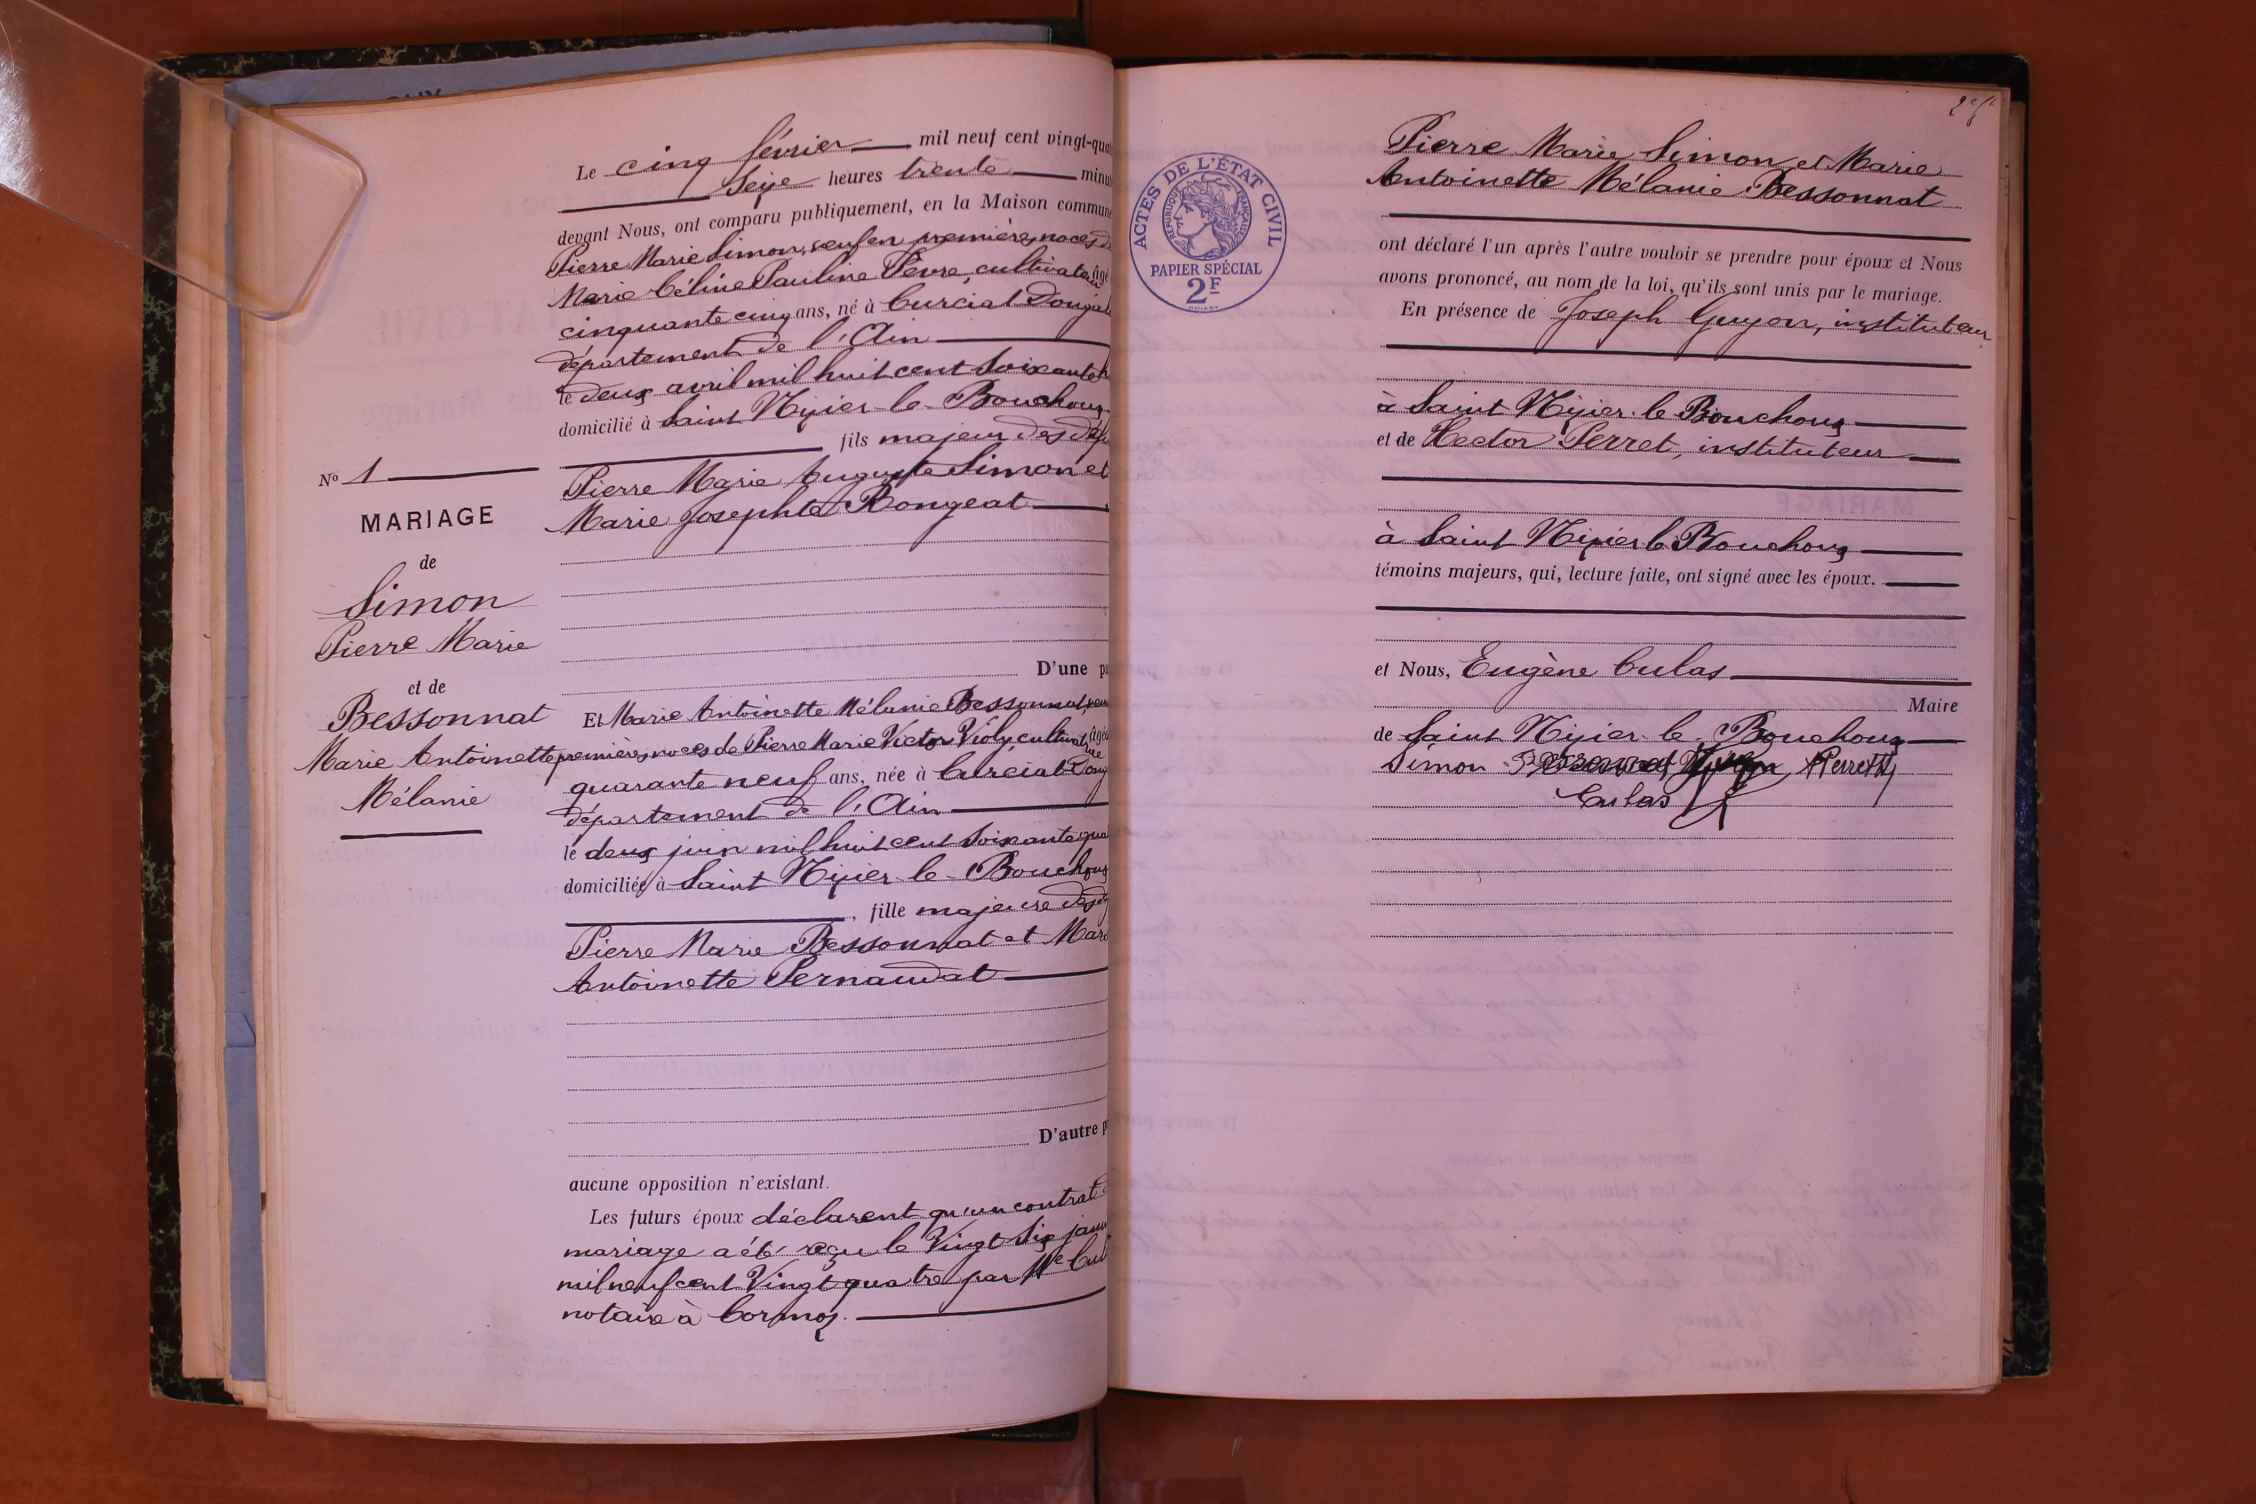 Le cinq février mil neuf cent vingt-qua
seize heures trente minu
devant Nous, ont comparu publiquement, en la Maison commune
Pierre Marie Simon, veuf en premières noces de
Marie Céline Pauline Fèvre, cultivateur âgé
cinquante cinq ans, né à Curciat Dongal
département de l'Ain
le deux avril mil huit cent soixante h
domicilié à Saint Nizier-le-Bouchoux
fils majeur des déf
Pierre Marie Auguste Simon et
Marie Josephte Rongeat
D'une pa
Nº 1
MARIAGE
de
Simon
Pierre Marie
et de
Bessonnat
Marie Antoinette
Mélanie
Et Marie Antoinette Mélanie Bessonnat, veu
premières noces de Pierre Marie Victor Violy, cultivatrice âgée
quarante neuf ans, née à Curciat Dong
département de l'Ain
le deux juin mil huit cent soixante qua
domiciliée à Saint Nizier-le-Bouchoux
, fille majeure des d
Pierre Marie Bessonnat et Mar
Antoinette Pernaudat
D'autre p
aucune opposition n'existant.
Les futurs époux déclarent qu'un contrat d
mariage a été reçu le Vingt six janv
mil neuf cent Vingt quatre par Me Cul
notaire à Cormoz.
ACTES DE L'ÉTAT CIVIL
RÉPUBLIQUE FRANÇAISE
PAPIER SPÉCIAL
2F
Pierre Marie Simon et Marie
Antoinette Mélanie Bessonnat
ont déclaré l'un après l'autre vouloir se prendre pour époux et Nous
avons prononcé, au nom de la loi, qu'ils sont unis par le mariage.
En présence de Joseph Guyon, instituteur
à Saint Nizier-le Bouchoux
et de Hector Perret, instituteur
à Saint Nizier le Bouchoux
témoins majeurs, qui, lecture faite, ont signé avec les époux.
et Nous, Eugène Culas
Maire
de Saint Nizier-le-Bouchoux
Simon Bessonnat Guyon HPerret
Culas